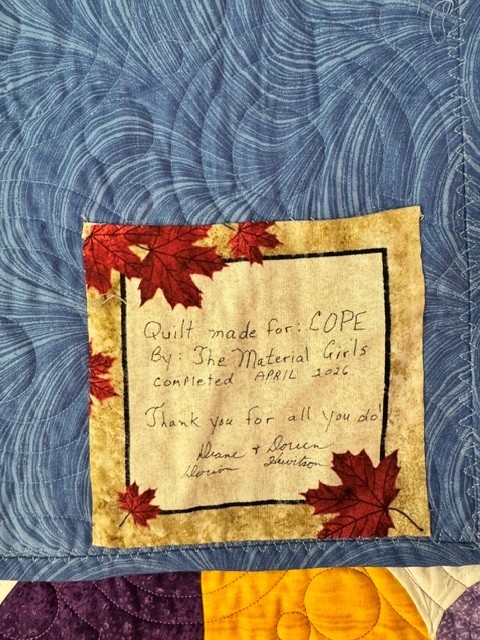 Quilt made for: COPE
By: The Material Girls
completed APRIL 2026
Thank you for all you do!
Diane + Doreen
Dorion Hewitson